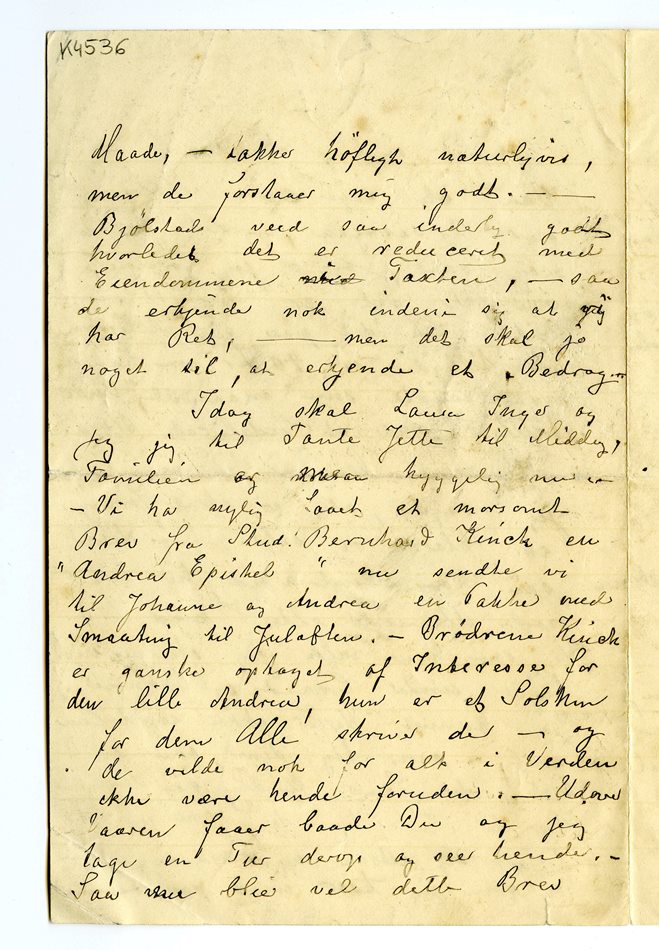 K4536
Maade, — takker höfligt naturligvis,
men de forstaaer mig godt. — —
Bjölstads veed saa inderlig godt
hvorledes det er reduceret med
Eiendommene Taxten, — saa
de erkjende nok indeni sig at vij
har Ret, — men det skal jo
noget til, at erkjende et Bedrag —
Idag skal Laura Inger og
jeg til Tante Jette til Middag,
Familien er hyggelig nu —
— Vi ha nylig faaet et morsomt
Brev fra Stud: Bernhard Kinck en
"Andrea Epistel" nu sendte vi
til Johanne og Andrea en Pakke med
Smaating til Juleaften. — Brödrene Kinck
er ganske optaget af Interesse for
den lille Andrea, hun er et Solskin
for dem Alle skriver de — og
de vilde nok for alt i Verden
ikke være hende foruden. — Udover
Vaaren faaer baade Du og jeg
tage en Tur derop og see hende. —
Saa blir vel dette Brev